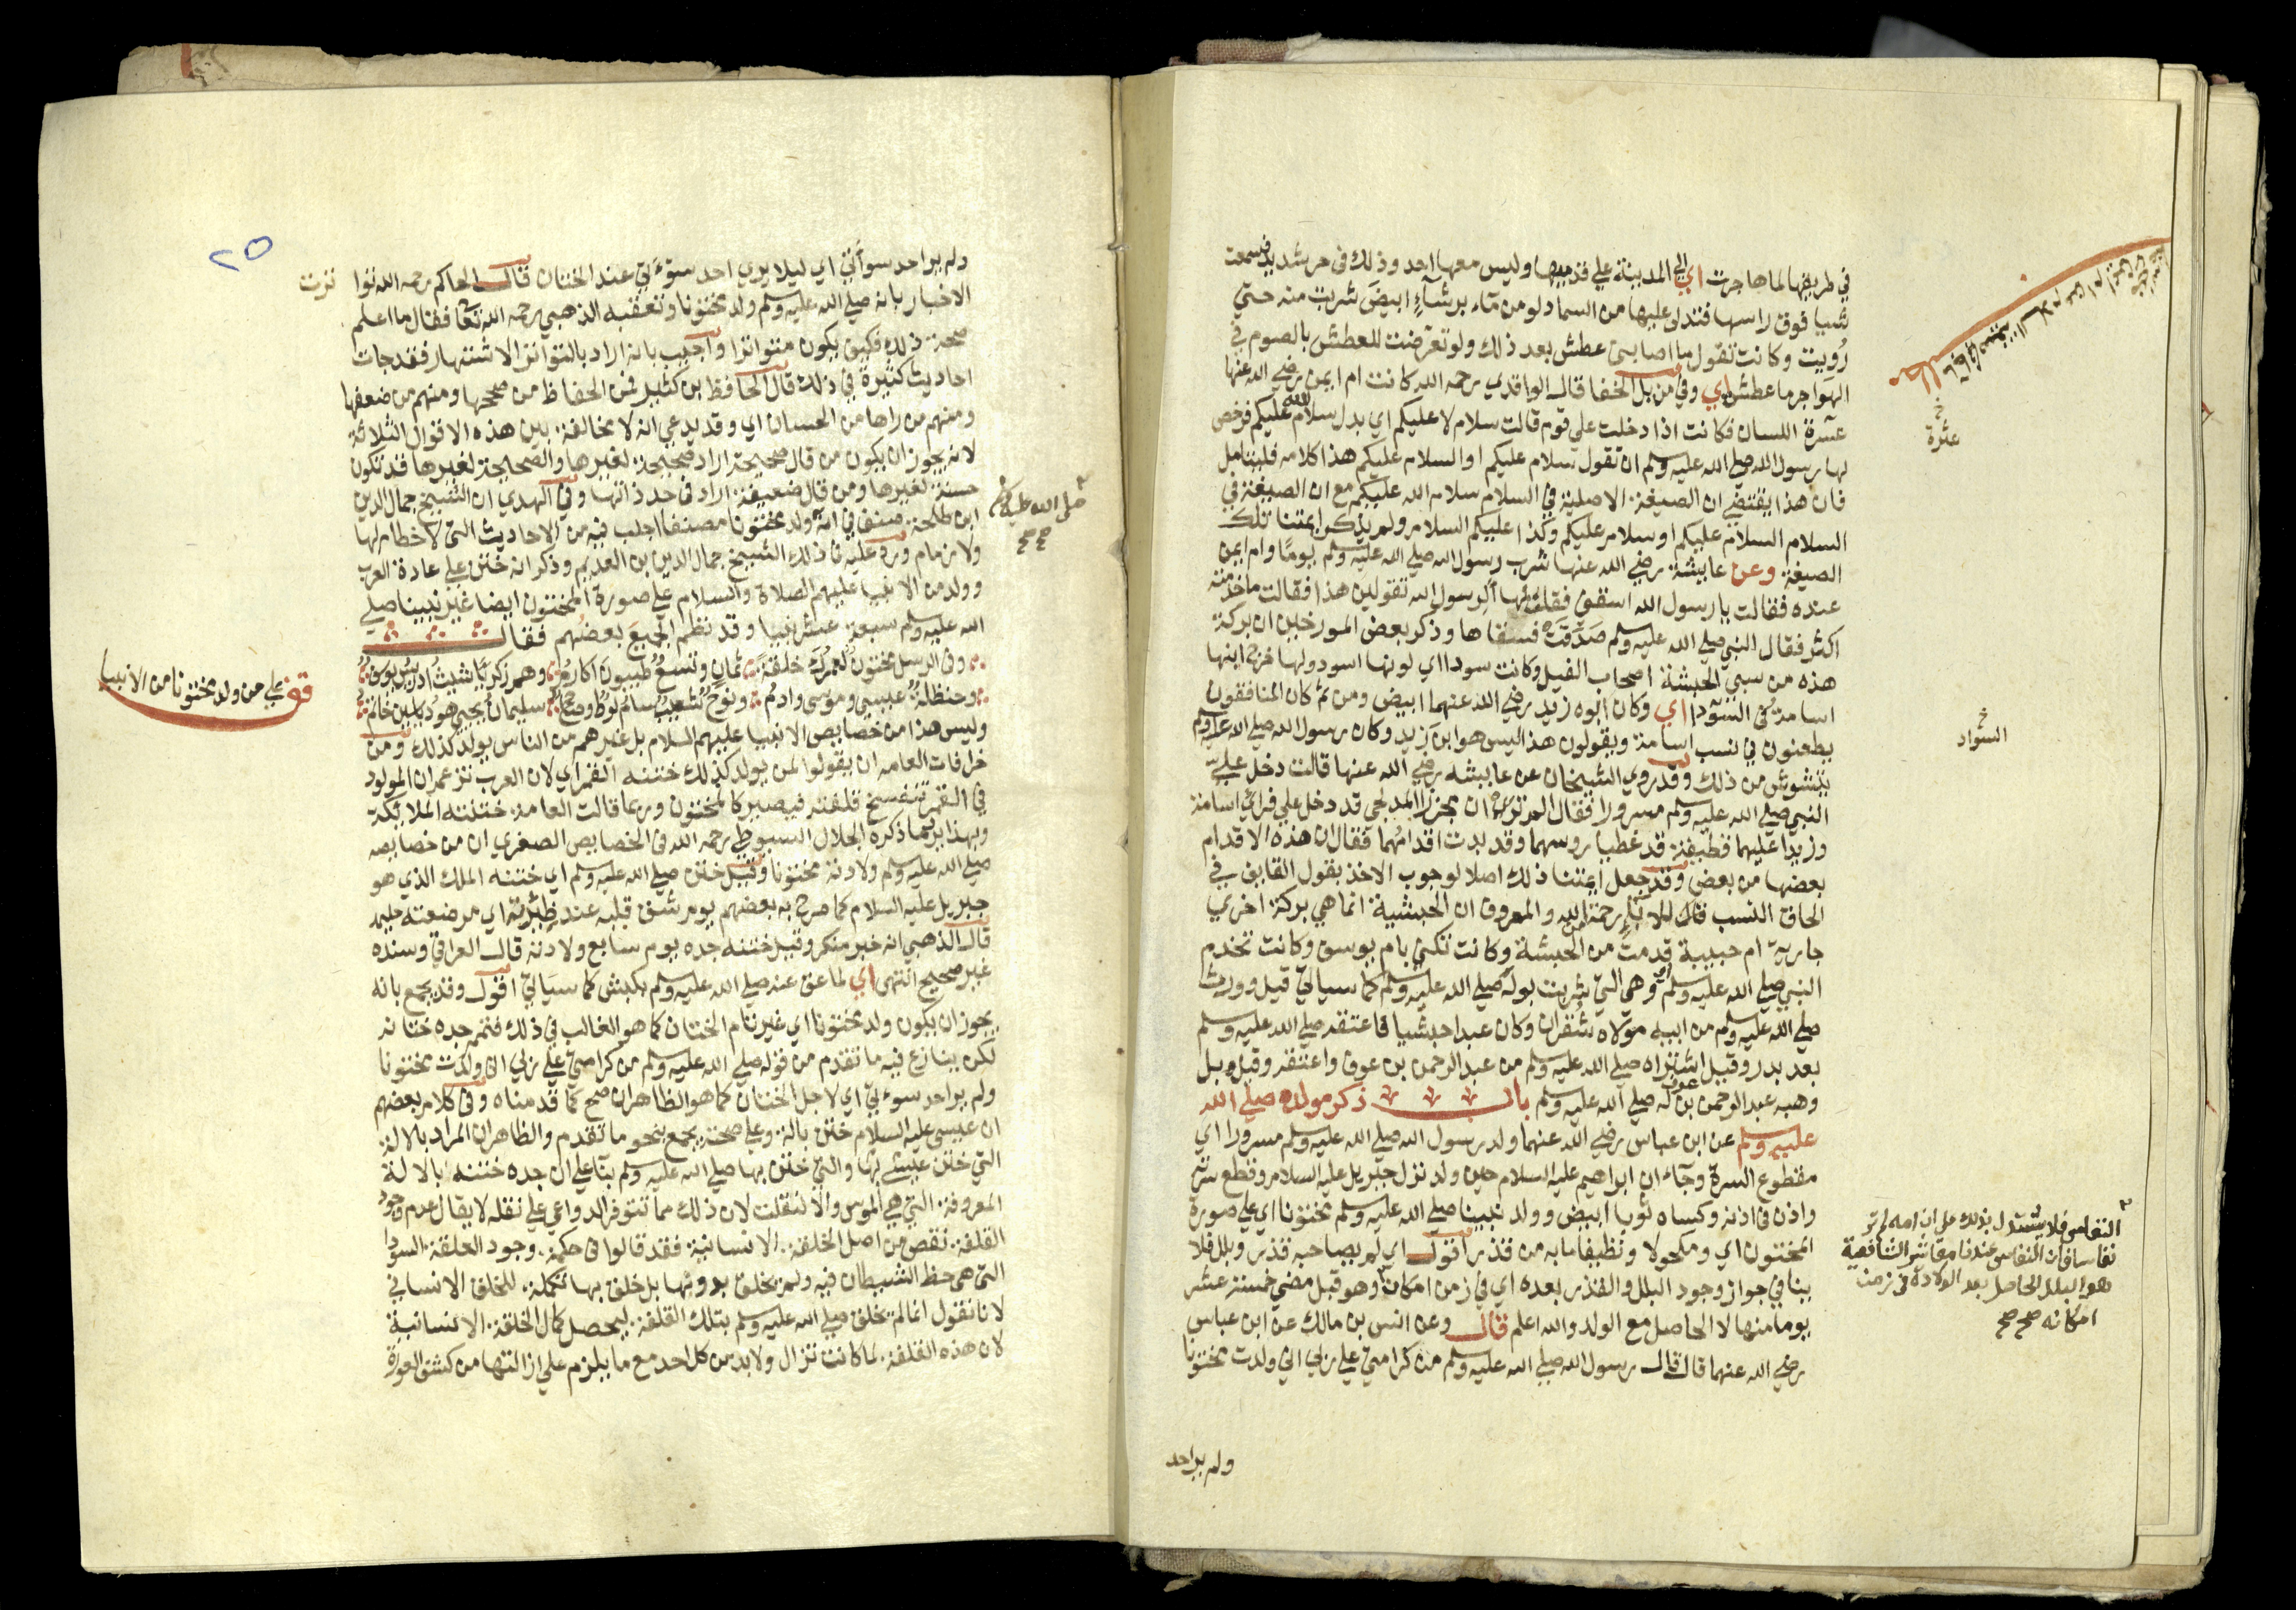 في طريقها لما هاجرت اي الى المدينة على قدميها وليس معها احد وذلك فى حر شديد فسمعت
شيا فوق راسها فتدلى عليها من السما دلو من مآء برشآءٍ ابيض شربت منه حتى
رُويت وكانت تقول ما اصابنى عطش بعد ذلك ولو تعرضت للعطش بالصوم في
الهواجر ما عطشت اي وفي مزيل الخفا قال الواقدي رحمه الله كانت ام ايمن رضي الله عنها
عسرة اللسان فكانت اذا دخلت على قوم قالت سلام لا عليكم اي بدل سلام الله عليكم فرخص
لها رسول الله صلي الله عليه وسلم ان تقول سلام عليكم او السلام عليكم هذا كلامه فليتامل
فان هذا يقتضي ان الصيغة الاصلية في السلام سلام الله عليكم مع ان الصيغة في
السلام السلام عليكم او سلام عليكم وكذا عليكم السلام ولم يذكر ايمتنا تلك
الصيغة وعن عايشة رضي الله عنها شرب رسول الله صلي الله عليه وسلم يومًا وام ايمن
عنده فقالت يا رسول الله اسقني فقلت لها ألرسول الله تقولين هذا فقالت ما خدمته
اكثر فقال النبي صلي الله عليه وسلم صَدَقَتْ فسقاها وذكر بعض المورخين ان بركة
هذه من سبي الحبشة اصحاب الفيل وكانت سودا اي لونها اسود ولهذا خرج ابنها
اسامة في السودا اي وكان ابوه زيد رضي الله عنهما ابيض ومن ثم كان المنافقون
يطعنون في نسب اسامة ويقولون هذا ليس هو ابن زيد وكان رسول الله صلي الله عليه وسلم
يتشوش من ذلك وقد روي الشيخان عن عايشه رضي الله عنها قالت دخل عليّ
النبي صلي الله عليه وسلم مسرورا فقال الم ترى ان مجززا المدلجى قد دخل علي فراي اسامة
وزيدا عليهما قطيفة قد غطيا روسهما وقد بدت اقدامُهما فقال ان هذه الاقدام
بعضها من بعض وقد جعل ايمتنا ذلك اصلا لوجوب الاخذ بقول القايف في
الحاق النسب قال الابّي رحمة الله والمعروف ان الحبشية انما هي بركة اخري
جارية ام حبيبة قدمت من الحبشة وكانت تكنى بام يوسف وكانت تخدم
النبي صلي الله عليه وسلم وهي التي شربت بوله صلي الله عليه وسلم كما سياتي قيل وورث
صلي الله عليه وسلم من ابيه مولاه شُقران وكان عبدا حبشيا فاعتقه صلي الله عليه وسلم
بعد بدر وقيل اشتراه صلي الله عليه وسلم من عبد الرحمن بن عوف واعتقه وقيل بل
وهبه عبد الرحمن بن عوف له صلي الله عليه وسلم باب ذكر مولده صلي الله
عليه وسلم عن ابن عباس رضي الله عنهما ولد رسول الله صلي الله عليه وسلم مسرورا اي
مقطوع السرة وجآء ان ابراهيم عليه السلام حين ولد نزل جبريل عليه السلام وقطع سرته
واذن فى اذنه وكساه ثوبا ابيض وولد نبينا صلي الله عليه وسلم مختونا اي على صورة
المختون اي ومكحولا ونظيفا ما به من قذر اقول اي لم يصاحبه قذر وبلل فلا
ينافي جواز وجود البلل والقذر بعده اي في زمن امكان وهو قبل مضي خمسة عشر
يوما منها لا الحاصل مع الولد والله اعلم قال وعن انس بن مالك عن ابن عباس
رضي الله عنهما قال قال رسول الله صلي الله عليه وسلم من كرامتي على ربي اني ولدت مختونا
ولم ير احد
مطلب
خ
عثرة
خ
السواد
النفاس فلا يستدل بذلك على ان امه لم تر
نفاسا فان النفاس عندنا معاشر الشافعية
هو البلل الحاصل بعد الولادة فى زمن
امكانه صح صح
٢٥
ولم ير احد سوأتي اي ليلا يري احد سوءتي عند الختان قال الحاكم رحمه الله توا
ترت
الاخبار بانه صلي الله عليه وسلم ولد مختونا وتعقبه الذهبي رحمه الله تعا فقال ما اعلم
صحة ذلك فكيف يكون متواترا واجيب بانه اراد بالتواتر الاشتهار فقد جات
احاديث كثيرة في ذلك قال الحافظ ابن كثير فمن الحفاظ من صححها ومنهم من ضعفها
ومنهم من راها من الحسان اي وقد يدعي انه لا مخالفة بين هذه الاقوال الثلاثة
لانه يجوز ان يكون من قال صحيحة اراد صحيحة لغيرها والصحيحة لغيرها قد تكون
حسنة لغيرها ومن قال ضعيفة اراد فى حد ذاتها وفي الهدي ان الشيخ جمال الدين
ابن طلحة صنف في انه ولد مختونا مصنفا اجلب فيه من الاحاديث التي لا خطام لها
ولا زمام ورد عليه فى ذلك الشيخ جمال الدين بن العديم وذكر انه ختن على عادة العرب
وولد من الانبيا عليهم الصلاة والسلام على صورة المختون ايضا غير نبينا صلي
الله عليه وسلم سبعة عشر نبيا وقد نظم الجميعَ بعضُهم فقال
وفى الرسل مختونٌ لعمرُكَ خلقةً ثمانٍ وتسعٌ طيبون اكارمُ وهم زكريا شيث ادريس يوسف
وحنظلة عيسى وموسى وادمُ ونوحٌ شعيبٌ سام لوط وصالح سليمان يحيى هود يس خاتم
وليس هذا من خصايص الانبيا عليهم السلام بل غيرهم من الناس يولد كذلك ومن
خرافات العامه ان يقولوا لمن يولد كذلك ختنه القمر اي لان العرب تزعم ان المولود
في القمر تنفسخ قلفته فيصير كالمختون وربما قالت العامة ختنته الملايكة
وبهذا يرد ما ذكره الجلال السيوطي رحمه الله فى الخصايص الصغري ان من خصايصه
صلي الله عليه وسلم ولادته مختونا وقيل ختن صلي الله عليه وسلم اي ختنه الملك الذي هو
جبريل عليه السلام كما صرح به بعضهم يوم شق قلبه عند ظِئرته اي مرضعته حليمه
قال الذهبي انه خبر منكر وقيل ختنه جده يوم سابع ولادته قال العراقي وسنده
غير صحيح انتهى اي لما عق عنه صلي الله عليه وسلم بكبش كما سيأتي اقول وقد يجمع بانه
يجوز ان يكون ولد مختونا اي غير تام الختان كما هو الغالب في ذلك فتمم جده ختانه
لكن ينازع فيه ما تقدم من قوله صلي الله عليه وسلم من كرامتي علي ربي اني ولدت مختونا
ولم ير احد سوءتي اي لاجل الختان كما هو الظاهر ان صح كما قدمناه وفى كلام بعضهم
ان عيسى عليه السلام ختن بالة وعلى صحته يجمع بنحو ما تقدم والظاهر ان المراد بالالة
التي ختن عيسى بها والتي ختن بها صلي الله عليه وسلم بنآ على ان جده ختنه بالالة
المعروفة التي هي الموسى والا نقلت لان ذلك مما تتوفر الدواعي علي نقله لا يقال عدم وجود
القلفة نقص من اصل الخلقة الانسانية فقد قالوا فى حكمة وجود العلقة السودا
التى هى حظ الشيطان فيه ولم يخلق بدونها بل خلق بها تكملة للخلق الانساني
لانا نقول انما لم يخلق صلي الله عليه وسلم بتلك القلفة ليحصل كمال الخلقة الانسانية
لان هذه القلفة لما كانت تزال ولا بد من كل احد مع ما يلزم علي ازالتها من كشف العورة
صلى الله عليه وسلم
صح صح
قف على من ولد مختونا من الانبيا